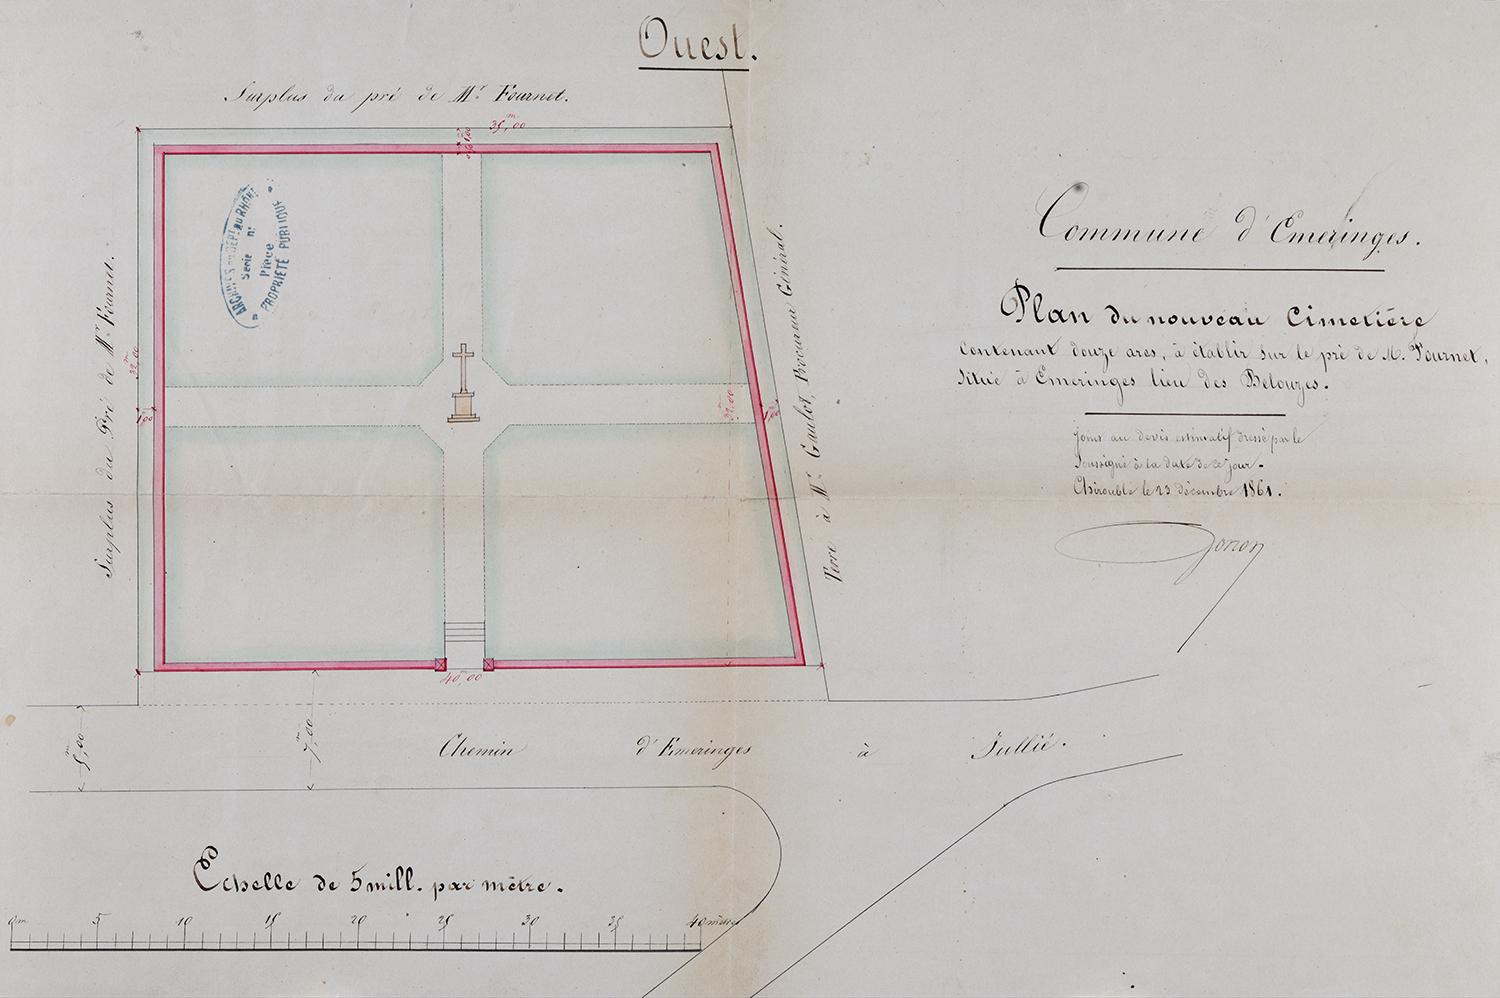 Ouest.
Surplus du pré de Mr Fournet.
35m,00
1,00
Surplus du Pré de Mr Fournet.
32m,00
1,00
ARCHIVES DU DEPT DU RHÔNE
Série n:
Pièce
PROPRIÉTÉ PUBLIQUE
32,00
1,00
Terre à Mr Gaulot, Procureur Général.
40m,00
5m,00
7m,00
Chemin d'Emeringes à Jullié.
Commune d'Emeringes.
Plan du nouveau Cimetière
contenant douze ares, à établir sur le pré de M. Fournet,
situé à Emeringes lieu des Belouzes.
Joint au devis estimatif dressé par le
Soussigné à la date de ce jour.
Chirouble le 23 décembre 1861.
Echelle de 5 mill. par mètre.
0m 5 10 15 20 25 30 35 40 mètres